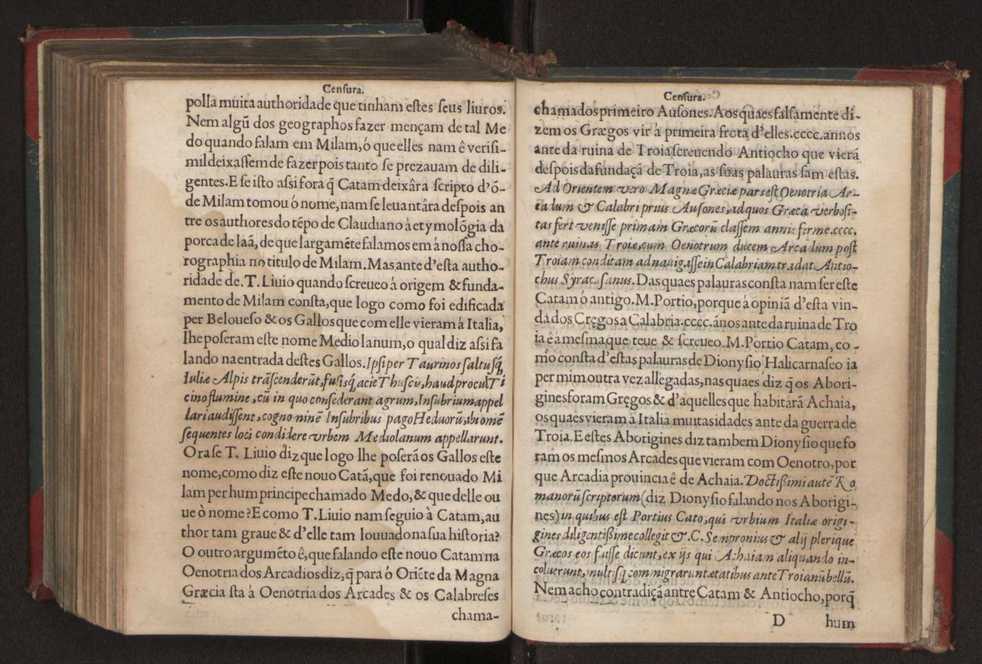 Censura.
polla muita authoridade que tinham estes seus liuros.
Nem algũ dos geographos fazer mençam de tal Me
do quando falam em Milam, ó que elles nam ê verisi-
mil deixassem de fazer pois tanto se prezauam de dili-
gentes. E se isto assi fora q̃ Catam deixâra scripto d'ó-
de Milam tomou ó nome, nam se leuantâra despois an
tre os authores do tẽpo de Claudiano à etymologia da
porca de laã, de que largamẽte falamos em à nossa cho-
rographia no titulo de Milam. Mas ante d'esta autho-
ridade de. T. Liuio quando screueo à origem & funda-
mento de Milam consta, que logo como foi edificada
per Beloueso & os Gallos que com elle vieram â Italia,
lhe poseram este nome Mediolanum, o qual diz assi fa
lando na entrada destes Gallos. Ipsi per Taurinos saltusq̃
Iuliæ Alpis trãscenderũt, fusisq̃ acie Thuscis, haud procul Ti
cino flumine, cũ in quo consederant agrum, Insubrium appel
lari audissent, cognomine Insubribus pago Heduorũ, ibi omẽ
sequentes loci condidere vrbem Mediolanum appellarunt.
Ora se T. Liuio diz que logo lhe poserã os Gallos este
nome, como diz este nouo Catã, que foi renouado Mi
lam per hum principe chamado Medo, & que delle ou
ue ò nome? E como T. Liuio nam seguio à Catam, au
thor tam graue & d'elle tam louuado na sua historia?
O outro argumẽto ê, que falando este nouo Catam na
Oenotria dos Arcadios diz, q̃ para ó Oriẽte da Magna
Græcia sta à Oenotria dos Arcades & os Calabreses
chama-
Censura.
chamados primeiro Ausones. Aos quaes falsamente di-
zem os Græcos vir à primeira frota d'elles. cccc. annos
ante da ruina de Troia screuendo Antiocho que vierã
despois da fundaçã de Troia, as suas palauras sam estas.
Ad Orientem vero Magnæ Græciæ pars est Oenotria Ar-
cadum & Calabri prius Ausones, ad quos Græca verbosi-
tas fert venisse primam Græcorũ classem annis firme. cccc.
ante ruinas Troiæ, cum Oenotrum ducem Arcadum post
Troiam conditam adnauigasse in Calabriam tradat Antio-
chus Syracusanus. Das quaes palauras consta nam ser este
Catam ó antigo. M. Portio, porque à opiniã d'esta vin-
da dos Cręgos a Calabria. cccc. ânos ante da ruina de Tro
ia é à mesma que teue & screueo. M. Portio Catam, co-
mo consta d'estas palauras de Dionysio Halicarnaseo ia
per mim outra vez allegadas, nas quaes diz q̃ os Abori-
gines foram Gręgos & d'aquelles que habitarã Achaia,
os quaes vieram â Italia muitas idades ante da guerra de
Troia. E estes Aborigines diz tambem Dionysio que fo
ram os mesmos Arcades que vieram com Oenotro, por
que Arcadia prouincia ê de Achaia. Doctissimi autẽ Ro
manorũ scriptorum (diz Dionysio falando nos Aborigi-
nes) in quibus est Portius Cato, qui vrbium Italiæ origi-
gines diligentissime collegit & C. Sempronius & alij plerique
Græcos eos fuisse dicunt, ex ijs qui Achaiam aliquando in-
coluerunt, multisq̃ commigrarunt ætatibus ante Troianũ bellũ.
Nem acho contradiçã antre Catam & Antiocho, porq̃
D hum